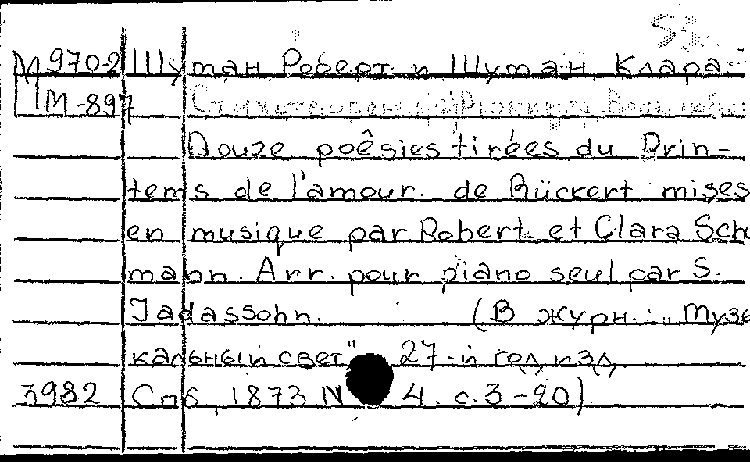 53.
М 970-2 Шуман Роберт и Шуман Клара
М-897 Стихотворений
Douze poêsies tirées du Prin-
tems de l'amour. de Rückert mises
en musique par Robert et Clara Sch
mann. Arr. pour piano seul par S.
Jadassohn. (В журн.: "Музы
кальный свет" 27-й год изд.
3982 Спб, 1873 N 4. с. 3-20)